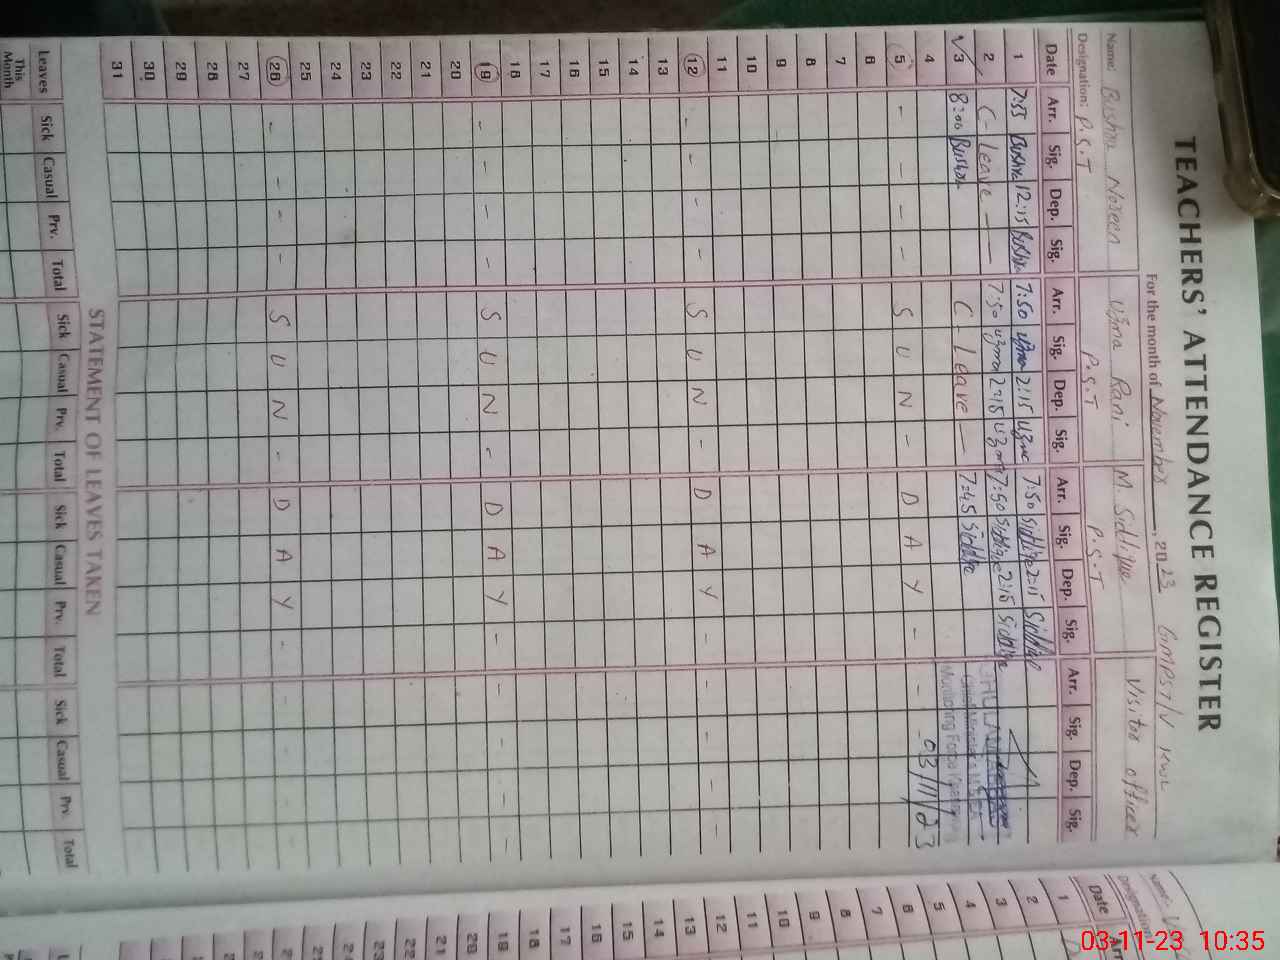 TEACHERS' ATTENDANCE REGISTER
For the month of November, 2023
Name: Bushra Noseen Uzma Rani M. Siddique Visitor officer
Designation: P.S.T P.S.T P.S.T
Date Arr. Sig. Dep. Sig. Arr. Sig. Dep. Sig. Arr. Sig. Dep. Sig. Arr. Sig. Dep. Sig.
1 7:55 Bushra 12:15 Bushra 7:50 Uzma 2:15 Uzma 7:50 Siddique 2:15 Siddique
2 C-leave — 7:50 Uzma 2:15 Uzma 7:50 Siddique 2:15 Siddique
3 8:00 Bushra C-Leave — 7:45 Siddique
4 03/11/23
5 - - - - S U N - D A Y - -
6
7
8
9
10
11
12 - - - - S U N - D A Y - - - -
13
14
15
16
17
18
19 - - - - S U N - D A Y - - - - -
20
21
22
23
24
25
26 - - - - S U N - D A Y - - - - -
27
28
29
30
31
STATEMENT OF LEAVES TAKEN
Leaves Sick Casual Prv. Total Sick Casual Prv. Total Sick Casual Prv. Total Sick Casual Prv. Total
This Month
Name:
Designation:
Date Arr.
1
2
3
4
5
6
7
8
9
10
11
12
13
14
15
16
17
18
19
20
21
22
23
24
25
03-11-23 10:35